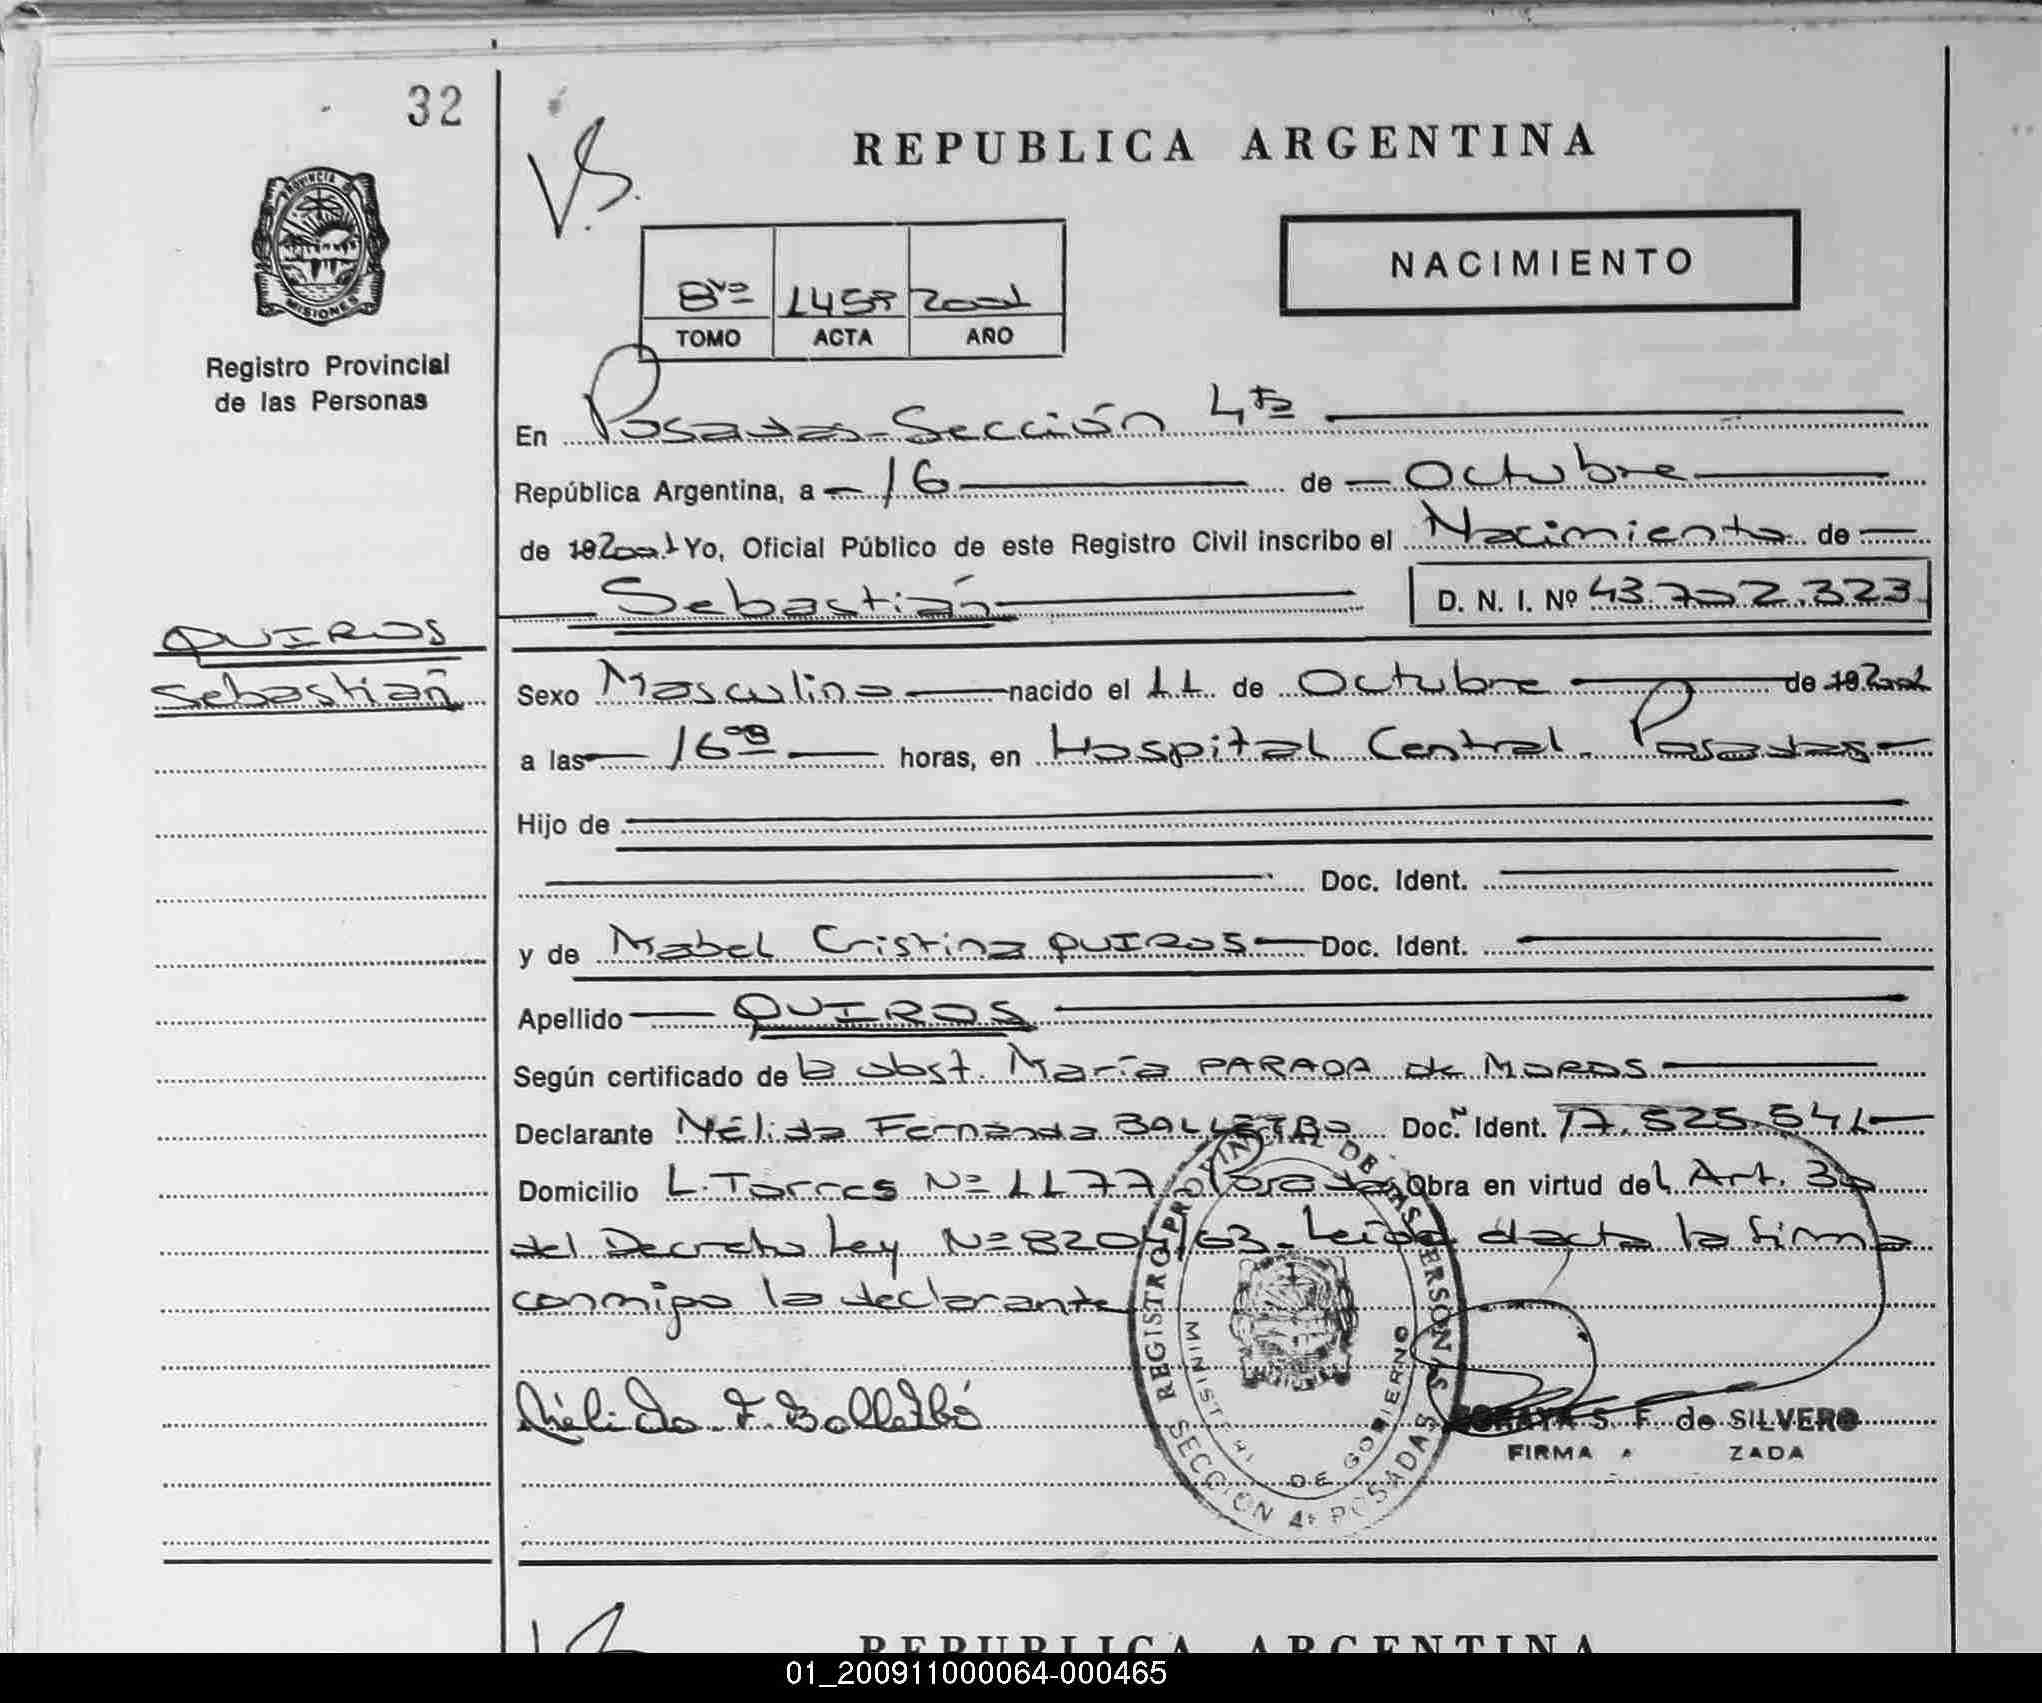 32
VS.
REPUBLICA ARGENTINA
PROVINCIA DE
MISIONES
NACIMIENTO
8vo 1458 2001
TOMO ACTA AÑO
Registro Provincial
de las Personas
En Posadas-Sección 4ta
República Argentina, a 16 de Octubre
de 192001 Yo, Oficial Público de este Registro Civil inscribo el Nacimiento de
Sebastián D. N. I. Nº 43.702.323
QUIROS
Sebastián
Sexo Masculino nacido el 11 de Octubre de 192001
a las 16 horas, en Hospital Central. Posadas
Hijo de
Doc. Ident.
y de Mabel Cristina QUIROS Doc. Ident.
Apellido QUIROS
Según certificado de la obst. María PARADA de MOROS
Declarante Nélida Fernanda BALLETBO Doc.N Ident. 17.525.541
Domicilio L. Torres Nº 1177 Posadas Obra en virtud del Art. 30
del Decreto Ley Nº 8204/63. Leida el acta la firma
conmigo la declarante
REGISTRO PROVINCIAL DE LAS PERSONAS
MINISTERI DE GOBIERNO
SECCION 4ª POSADAS
Nélida F. Balletbó
S. F. de SILVERO
FIRMA ZADA
REPUBLICA ARGENTINA
01_200911000064-000465